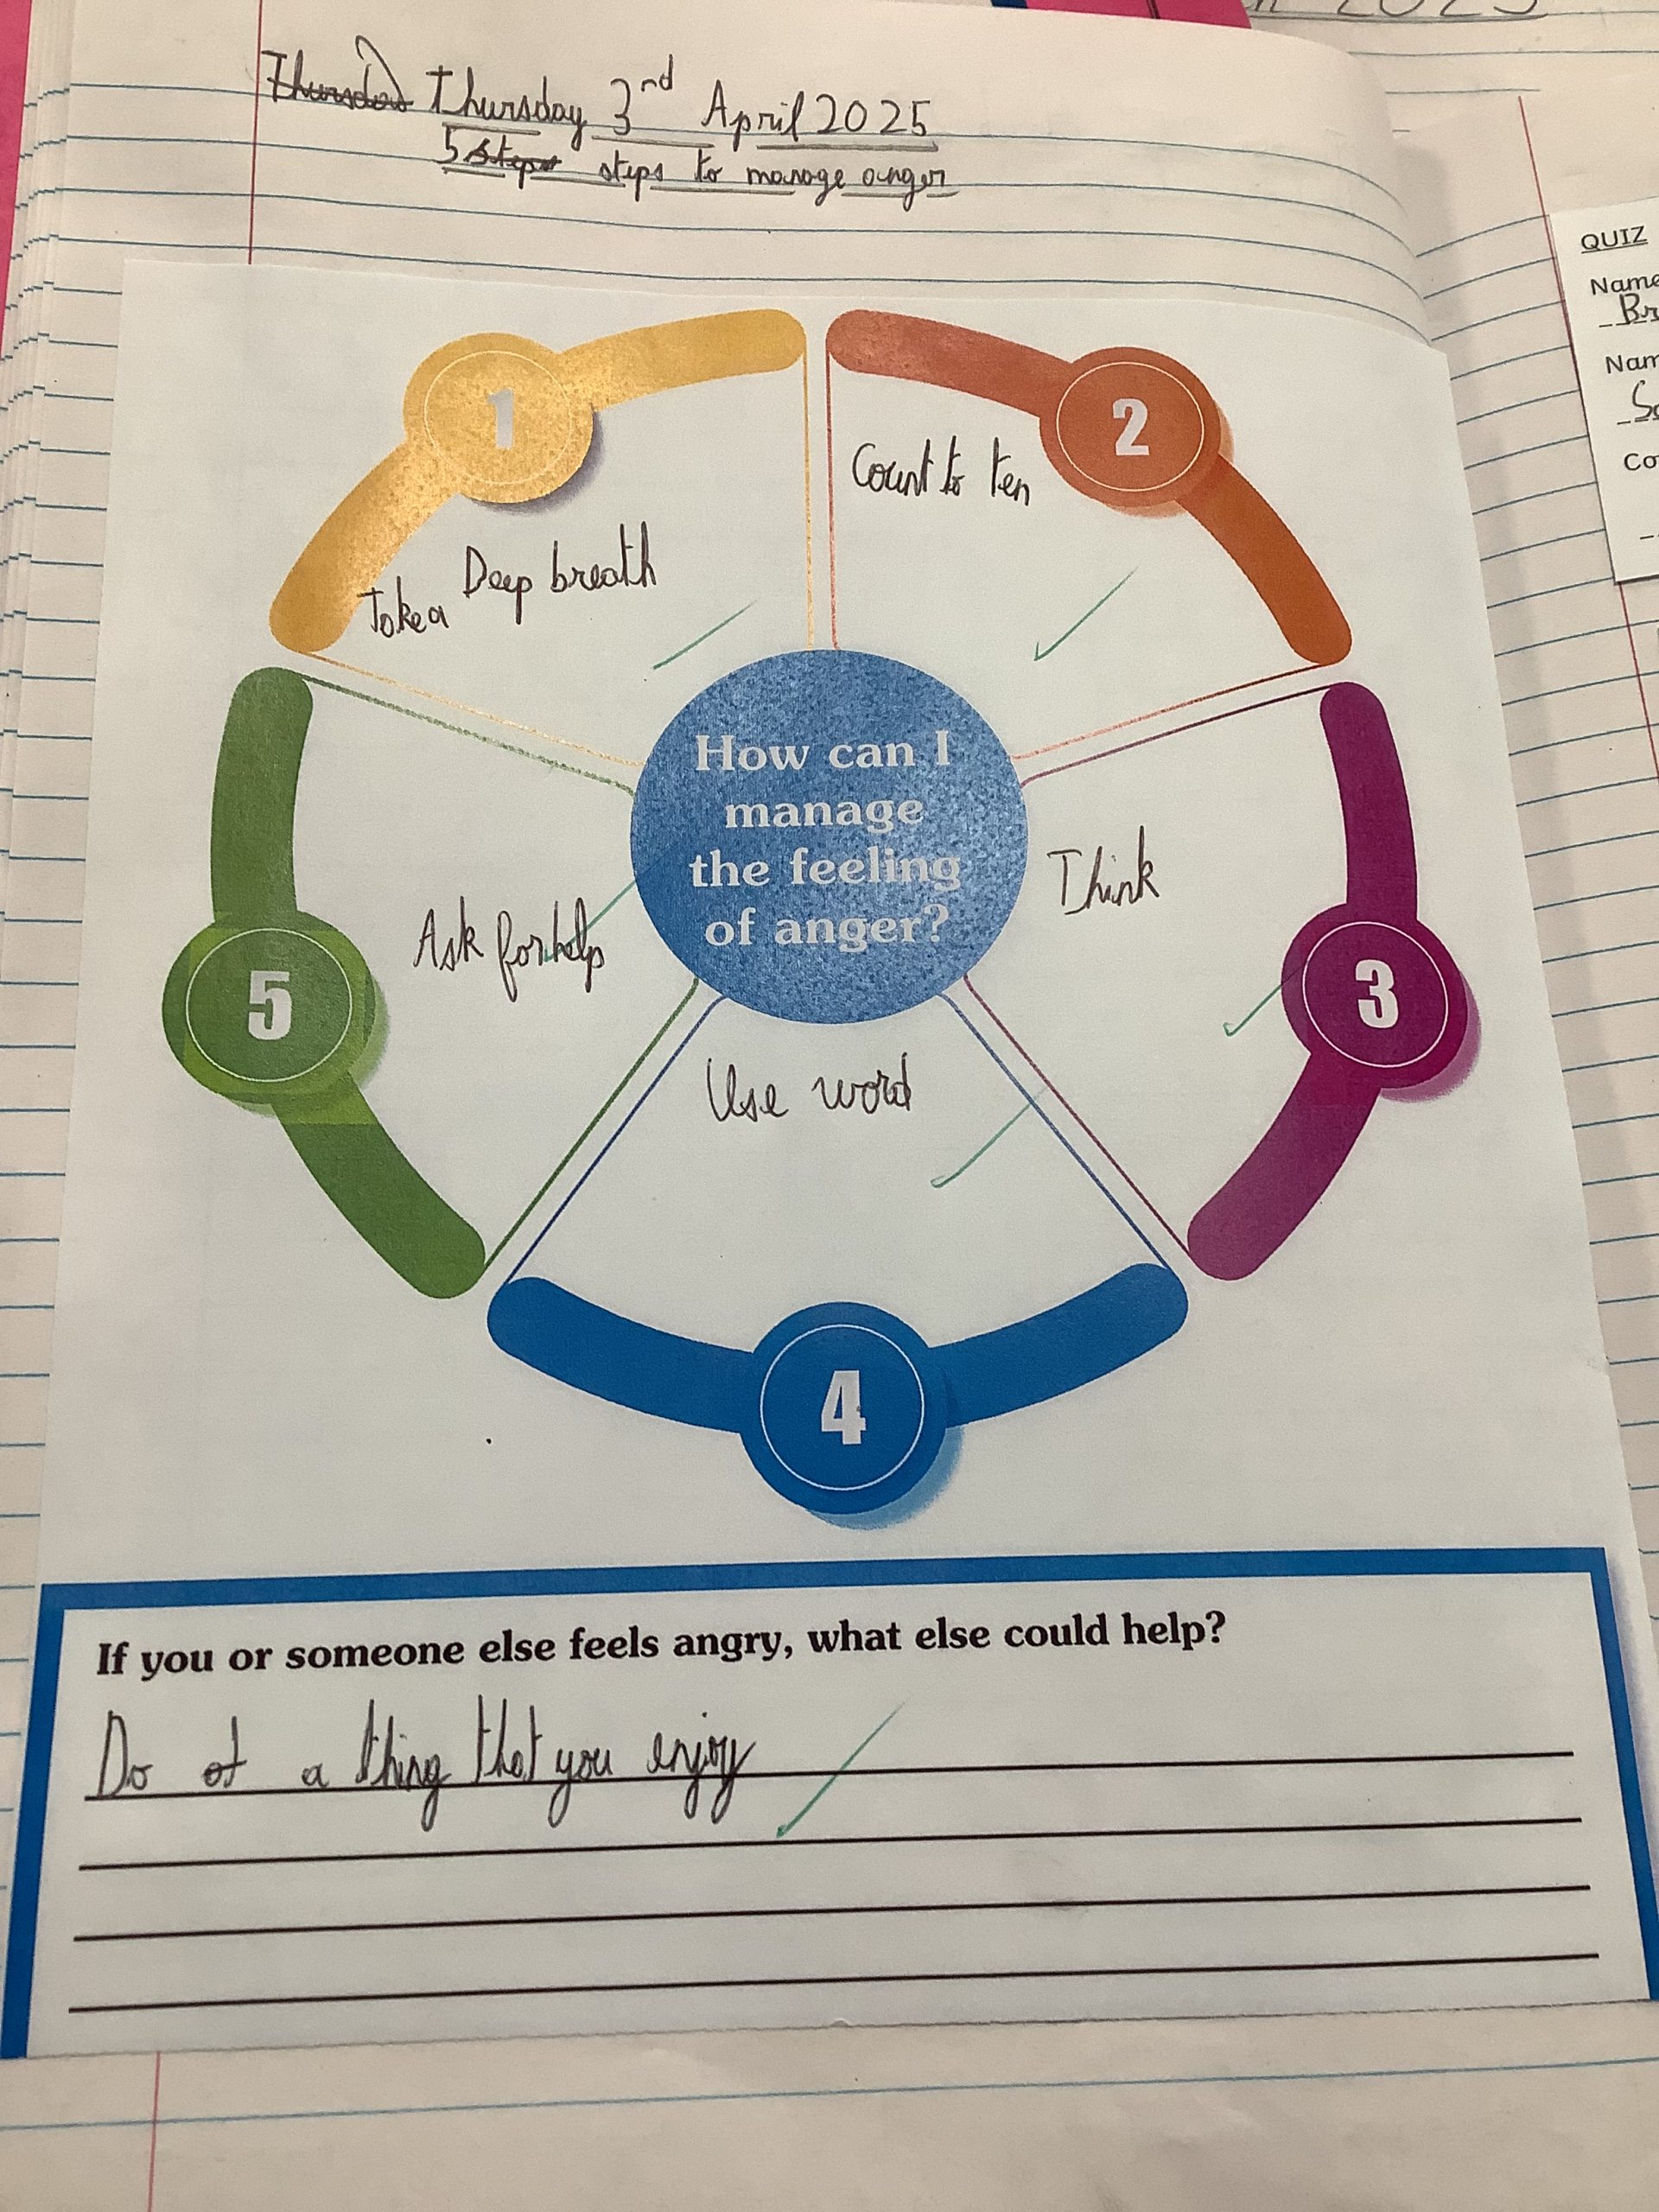 Thursday Thursday 3rd April 2025
5 steps steps to manage anger
1
Take a Deep breath
2
Count to ten
How can I
manage
the feeling
of anger?
3
Think
4
Use word
5
Ask for help
If you or someone else feels angry, what else could help?
Do of a thing that you enjoy
QUIZ
Name
Br
Nam
So
Co
2025